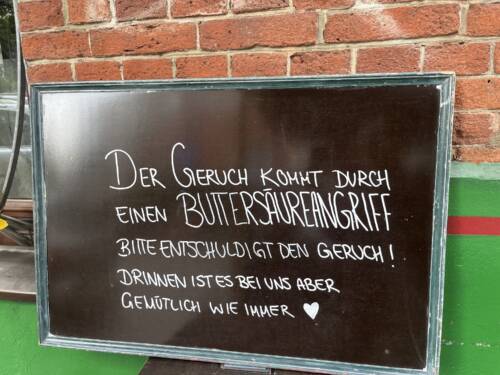 DER GERUCH KOMMT DURCH
EINEN BUTTERSÄUREANGRIFF
BITTE ENTSCHULDIGT DEN GERUCH!
DRINNEN IST ES BEI UNS ABER
GEMÜTLICH WIE IMMER ♥